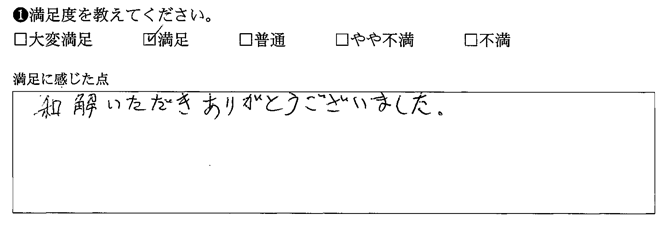 ❶満足度を教えてください。
□大変満足 ☑満足 □普通 □やや不満 □不満
満足に感じた点
和解いただきありがとうございました。